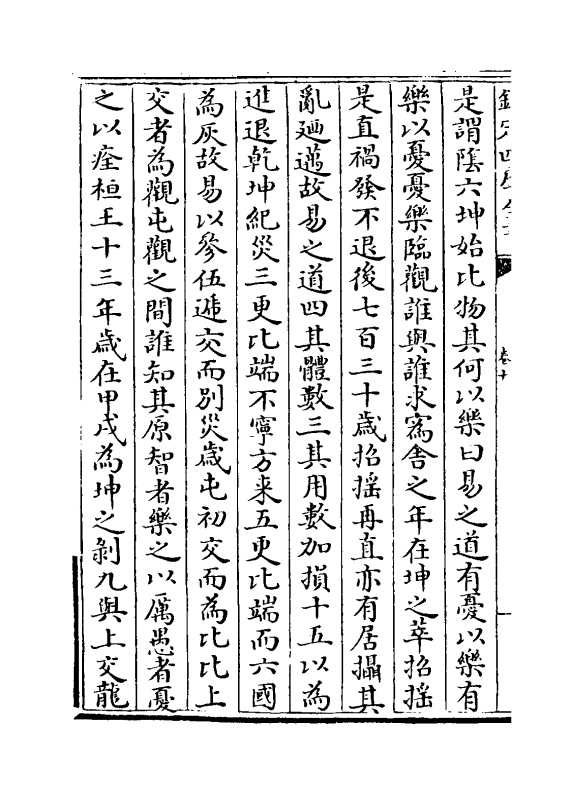 是謂陰六坤始比物其何以樂曰易之道有憂以樂有
樂以憂憂樂臨觀誰與誰求寫舎之年在坤之萃招搖
是直禍發不退後七百三十歲招搖再直亦有居攝其
亂廼蔿故易之道四其體數三其用數加損十五以為
進退乾坤紀災三更比端不寧方来五更比端而六國
為灰故易以參伍遞交而別災歲屯初交而為比比上
交者為觀屯觀之間誰知其原智者樂之以厲愚者憂
之以痊桓王十三年歲在甲戌為坤之剝九與上交龍